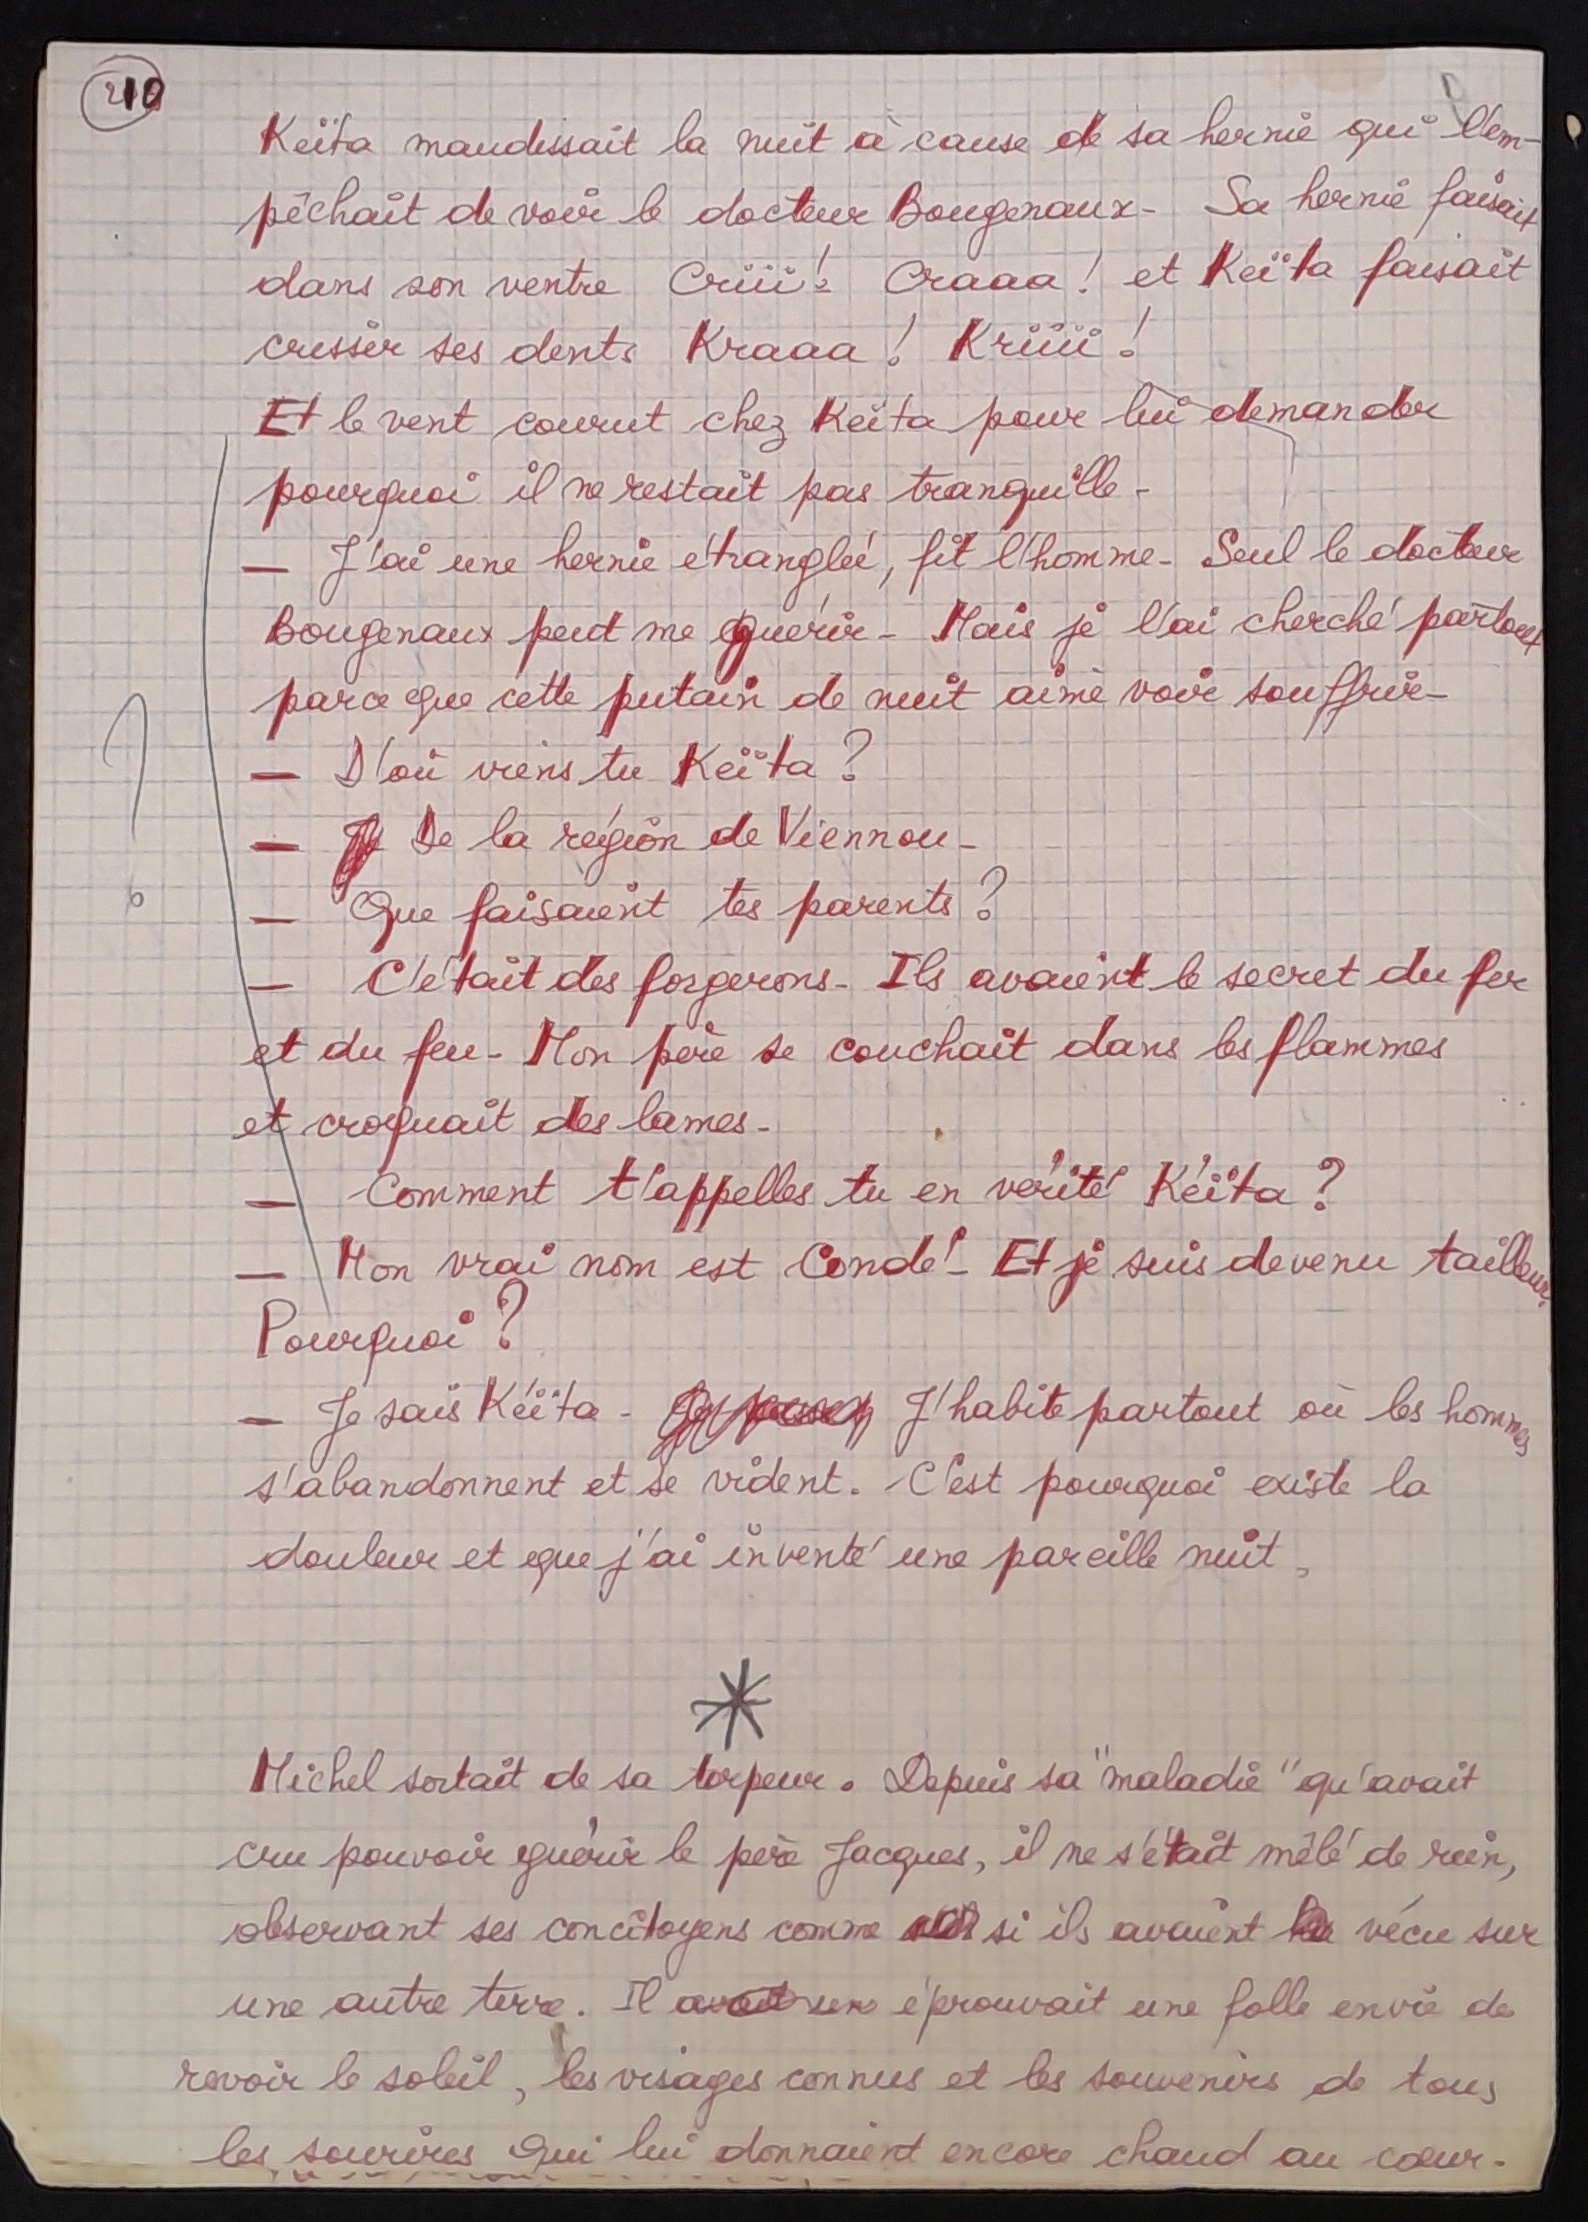 210
Keïta maudissait la nuit à cause de sa hernie qui l'em-
pêchait de voir le docteur Bougenaux- Sa hernie faisait
dans son ventre Criii! Craaa! et Keïta faisait
crisser ses dents Kraaa! Kriiii!
Et le vent courut chez Keïta pour lui demander
pourquoi il ne restait pas tranquille-
— J'ai une hernie étranglée, fit l'homme- Seul le docteur
Bougenaux peut me guérir- Mais je l'ai cherché partout
parce que cette putain de nuit aime voir souffrir-
— D'où viens tu Keïta?
— De la région de Viennou-
— Que faisaient tes parents?
— C'était des forgerons- Ils avaient le secret du fer
et du feu- Mon père se couchait dans les flammes
et croquait des lames-
— Comment t'appelles tu en vérité Kéïta?
— Mon vrai nom est Condé- Et je suis devenu tailleur.
Pourquoi?
— Je sais Kéïta- J'habite partout où les hommes
s'abandonnent et se vident. C'est pourquoi existe la
douleur et que j'ai inventé une pareille nuit.
*
Michel sortait de sa torpeur. Depuis sa "maladie" qu'avait
cru pouvoir guérir le père Jacques, il ne s'était mêlé de rien,
observant ses concitoyens comme si ils avaient vécu sur
une autre terre. Il éprouvait une folle envie de
revoir le soleil, les visages connus et les souvenirs de tous
les sourires qui lui donnaient encore chaud au cœur-